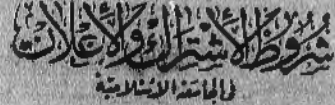 شروط الاشتراك والاعلانات
في الجامعة الاسلامية